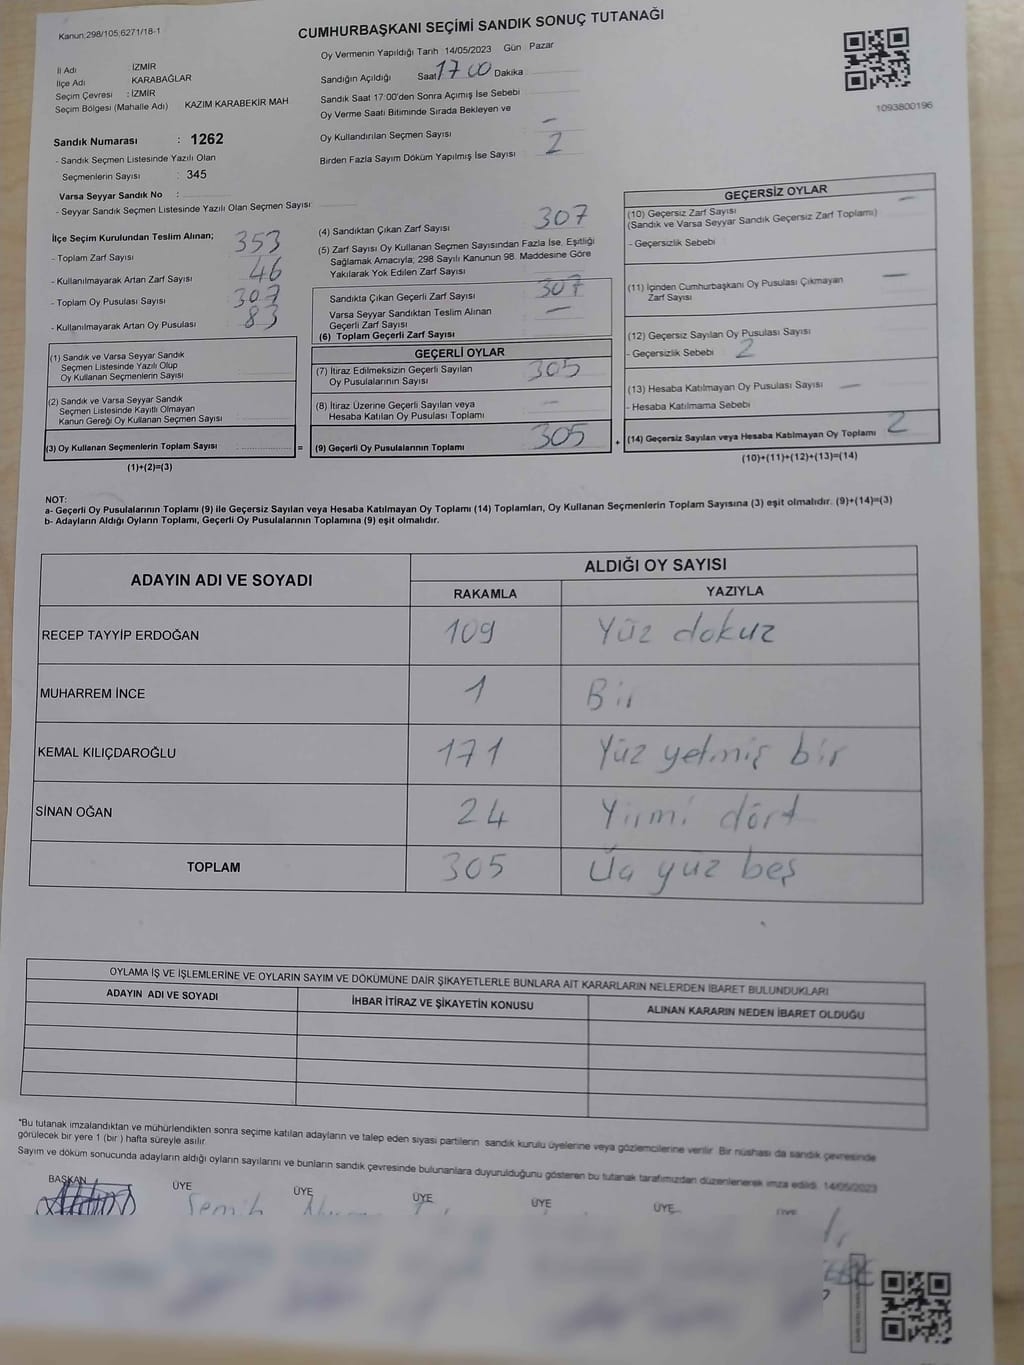 Kanun:298/105;6271/18-1
CUMHURBAŞKANI SEÇİMİ SANDIK SONUÇ TUTANAĞI
İl Adı İZMİR
İlçe Adı KARABAĞLAR
Seçim Çevresi : İZMİR
Seçim Bölgesi (Mahalle Adı) KAZIM KARABEKİR MAH
Oy Vermenin Yapıldığı Tarih 14/05/2023 Gün Pazar
Sandığın Açıldığı Saat 17 00 Dakika
Sandık Saat 17:00'den Sonra Açımış İse Sebebi
Oy Verme Saati Bitiminde Sırada Bekleyen ve
Oy Kullandırılan Seçmen Sayısı –
Birden Fazla Sayım Döküm Yapılmış İse Sayısı 2
1093800196
Sandık Numarası : 1262
- Sandık Seçmen Listesinde Yazılı Olan
Seçmenlerin Sayısı : 345
Varsa Seyyar Sandık No :
- Seyyar Sandık Seçmen Listesinde Yazılı Olan Seçmen Sayısı:
İlçe Seçim Kurulundan Teslim Alınan;
- Toplam Zarf Sayısı 353
- Kullanılmayarak Artan Zarf Sayısı 46
- Toplam Oy Pusulası Sayısı 307
- Kullanılmayarak Artan Oy Pusulası 83
(1) Sandık ve Varsa Seyyar Sandık
Seçmen Listesinde Yazılı Olup
Oy Kullanan Seçmenlerin Sayısı
(2) Sandık ve Varsa Seyyar Sandık
Seçmen Listesinde Kayıtlı Olmayan
Kanun Gereği Oy Kullanan Seçmen Sayısı
(3) Oy Kullanan Seçmenlerin Toplam Sayısı =
(1)+(2)=(3)
(4) Sandıktan Çıkan Zarf Sayısı 307
(5) Zarf Sayısı Oy Kullanan Seçmen Sayısından Fazla İse, Eşitliği
Sağlamak Amacıyla; 298 Sayılı Kanunun 98. Maddesine Göre
Yakılarak Yok Edilen Zarf Sayısı
Sandıkta Çıkan Geçerli Zarf Sayısı 307
Varsa Seyyar Sandıktan Teslim Alınan
Geçerli Zarf Sayısı –
(6) Toplam Geçerli Zarf Sayısı
GEÇERLİ OYLAR
(7) İtiraz Edilmeksizin Geçerli Sayılan
Oy Pusulalarının Sayısı 305
(8) İtiraz Üzerine Geçerli Sayılan veya
Hesaba Katılan Oy Pusulası Toplamı –
(9) Geçerli Oy Pusulalarının Toplamı 305 +
GEÇERSİZ OYLAR
(10) Geçersiz Zarf Sayısı –
(Sandık ve Varsa Seyyar Sandık Geçersiz Zarf Toplamı)
- Geçersizlik Sebebi
(11) İçinden Cumhurbaşkanı Oy Pusulası Çıkmayan –
Zarf Sayısı
(12) Geçersiz Sayılan Oy Pusulası Sayısı
- Geçersizlik Sebebi 2
(13) Hesaba Katılmayan Oy Pusulası Sayısı –
- Hesaba Katılmama Sebebi
(14) Geçersiz Sayılan veya Hesaba Katılmayan Oy Toplamı 2
(10)+(11)+(12)+(13)=(14)
NOT:
a- Geçerli Oy Pusulalarının Toplamı (9) ile Geçersiz Sayılan veya Hesaba Katılmayan Oy Toplamı (14) Toplamları, Oy Kullanan Seçmenlerin Toplam Sayısına (3) eşit olmalıdır. (9)+(14)=(3)
b- Adayların Aldığı Oyların Toplamı, Geçerli Oy Pusulalarının Toplamına (9) eşit olmalıdır.
ADAYIN ADI VE SOYADI ALDIĞI OY SAYISI
RAKAMLA YAZIYLA
RECEP TAYYİP ERDOĞAN 109 Yüz dokuz
MUHARREM İNCE 1 Bir
KEMAL KILIÇDAROĞLU 171 Yüz yetmiş bir
SİNAN OĞAN 24 Yirmi dört
TOPLAM 305 Üç yüz beş
OYLAMA İŞ VE İŞLEMLERİNE VE OYLARIN SAYIM VE DÖKÜMÜNE DAİR ŞİKAYETLERLE BUNLARA AİT KARARLARIN NELERDEN İBARET BULUNDUKLARI
ADAYIN ADI VE SOYADI İHBAR İTİRAZ VE ŞİKAYETİN KONUSU ALINAN KARARIN NEDEN İBARET OLDUĞU
*Bu tutanak imzalandıktan ve mühürlendikten sonra seçime katılan adayların ve talep eden siyasi partilerin sandık kurulu üyelerine veya gözlemcilerine verilir. Bir nüshası da sandık çevresinde
görülecek bir yere 1 (bir) hafta süreyle asılır.
Sayım ve döküm sonucunda adayların aldığı oyların sayılarını ve bunların sandık çevresinde bulunanlara duyurulduğunu gösteren bu tutanak tarafımızdan düzenlenerek imza edildi. 14/05/2023
BAŞKAN ÜYE ÜYE ÜYE ÜYE ÜYE ÜYE
Semih